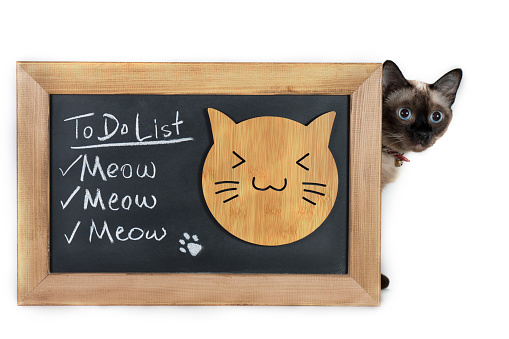 To Do List
✓Meow
✓Meow
✓Meow